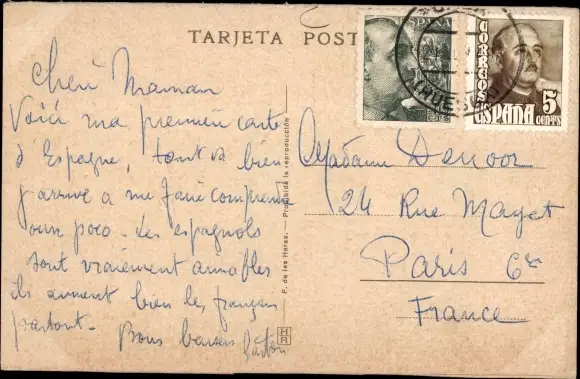 TARJETA POST
ESPAÑA
CORREOS
ESPAÑA 5
CENTS
(HUESCA)
Chéri Maman
Voici ma première carte
d'Espagne, tout va bien
j'arrive a me faire comprendre
un peu - Les espagnols
sont vraiement aimables
ils aiment bien les français
partout -
Bons baisers
Madame Denoor
24 Rue Mayet
Paris 6e
France
F. de las Heras. — Prohibida la reproducción
HR